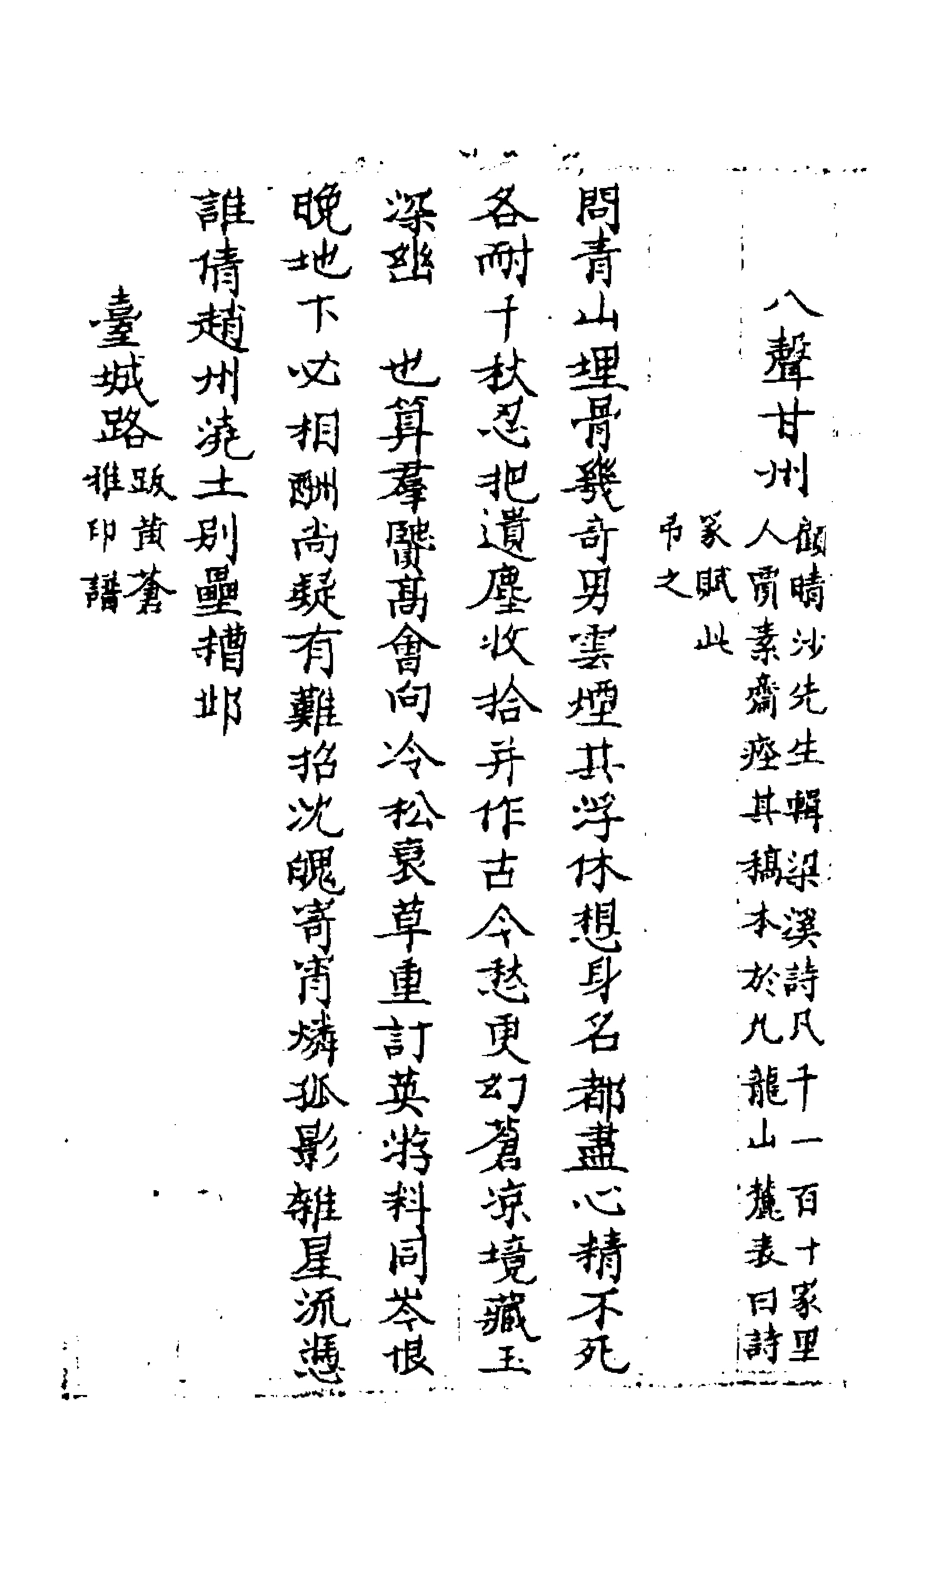 八聲甘州 顧晴沙先生輯梁溪詩凡千一百十家里
人賈素齋瘞其稿本於九龍山麓表曰詩
冢賦此
弔之
問青山埋骨幾奇男雲煙其浮休想身名都盡心精不死
各耐千秋忍把遺塵收拾并作古今愁更幻蒼凉境藏玉
深幽　也算羣賢高會向冷松衰草重訂英游料同岑恨
晚地下必相酬尚疑有難招沈魄寄宵燐孤影雜星流憑
誰倩趙州澆土別壘糟邱
臺城路 跋黄蒼
雅印譜